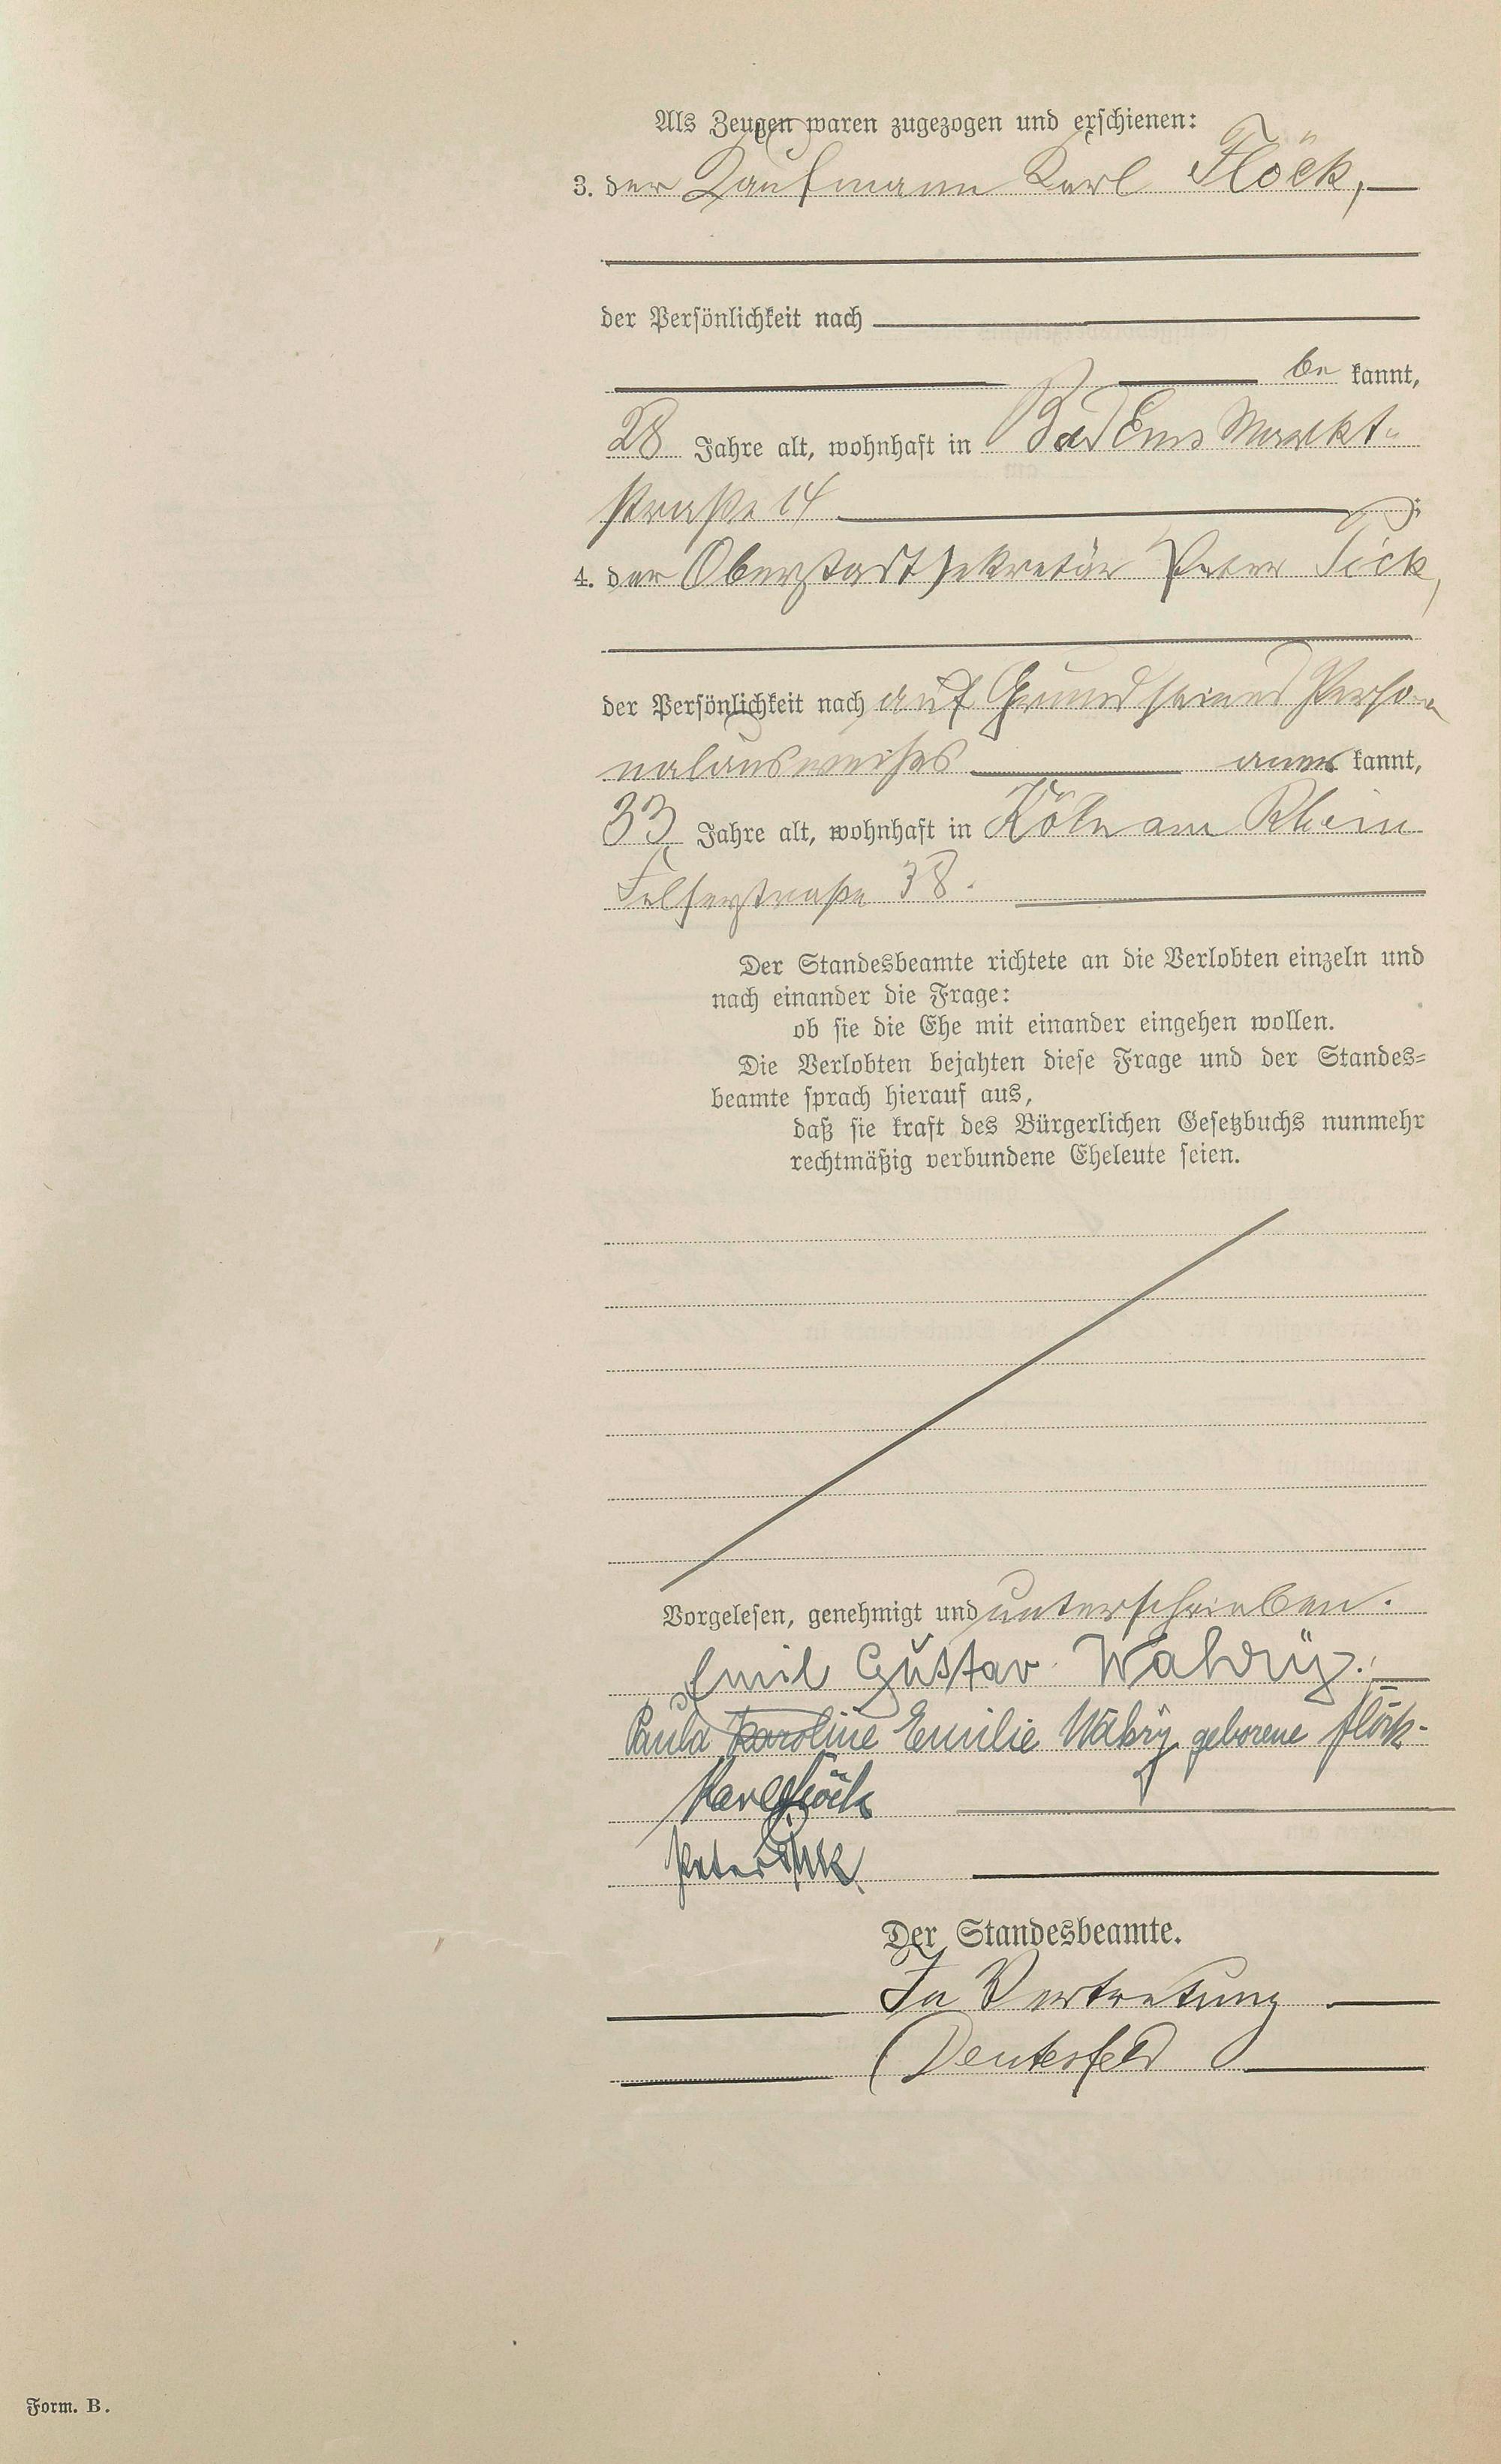 Als Zeugen waren zugezogen und erschienen:
3. der Kaufmann Karl Flöck,
der Persönlichkeit nach
be kannt,
28 Jahre alt, wohnhaft in Bad Ems Markt-
straße 14 ;
4. der Oberstadtsekretär Peter Fick,
der Persönlichkeit nach auf Grund seines Perso-
nalausweises aner kannt,
33 Jahre alt, wohnhaft in Köln am Rhein
38.
Der Standesbeamte richtete an die Verlobten einzeln und
nach einander die Frage:
ob sie die Ehe mit einander eingehen wollen.
Die Verlobten bejahten diese Frage und der Standes-
beamte sprach hierauf aus,
daß sie kraft des Bürgerlichen Gesetzbuchs nunmehr
rechtmäßig verbundene Eheleute seien.
Vorgelesen, genehmigt und unterschrieben.
Emil Gustav Wahrÿ.
Paula Karoline Emilie Wahrÿ geborene Flöck.
Karl Flöck
Peter Fick
Der Standesbeamte.
In Vertretung
Deutesfeld
Form. B.